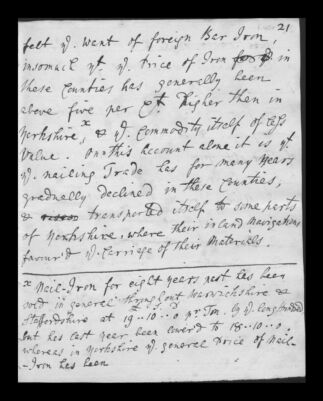 21
felt yͤ. want of foreign Bar Iron,
insomuch yͭ. yͤ. Price of Iron in
these Counties has generally been
above five per Cͭ. higher then in
Yorkshire,ˣ & yͤ. Commodity itself of less
Value. On this account alone it is yͭ.
yͤ. nailing Trade has for many Years
gradually declined in these Counties,
& transported itself to some parts
of Yorkshire, where their inland Navigations
favour'd yͤ. Carriage of their Materials.
x Nail-Iron for eight years past has been
sold in general throughout Warwickshire &
Staffordshire at 19..10..0 pr. Ton. by yͤ. long hundred
but has last year been lower'd to 18..10..0.
whereas in Yorkshire yͤ. general Price of Nail-
-Iron has been